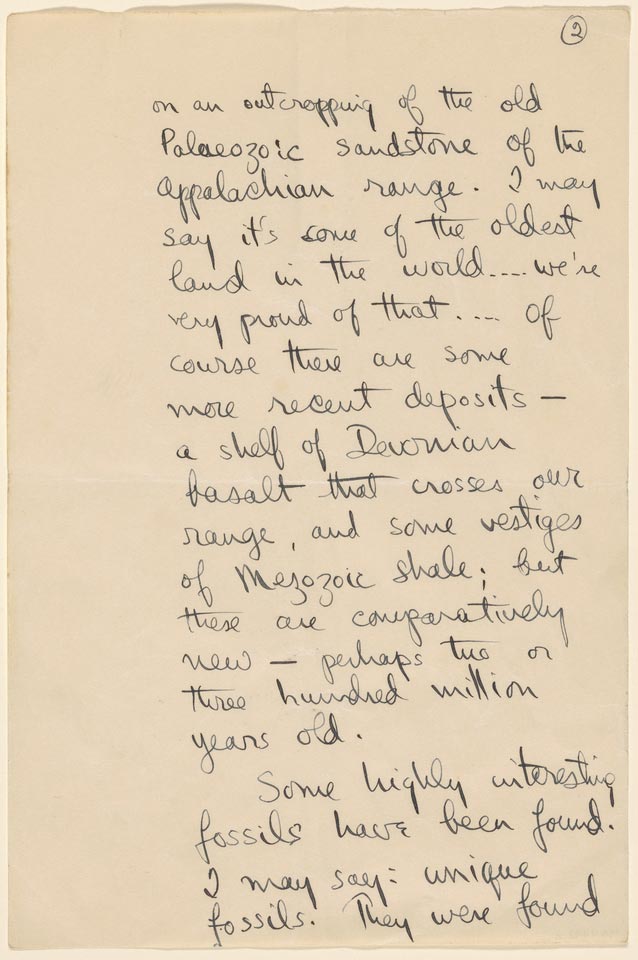 2
on an outcropping of the old
Palaeozoic sandstone of the
Appalachian range. I may
say it's some of the oldest
land in the world.... we're
very proud of that.... Of
course there are some
more recent deposits —
a shelf of Devonian
basalt that crosses our
range, and some vestiges
of Mezozoic shale; but
these are comparatively
new — perhaps two or
three hundred million
years old.
Some highly interesting
fossils have been found.
I may say: unique
fossils. They were found